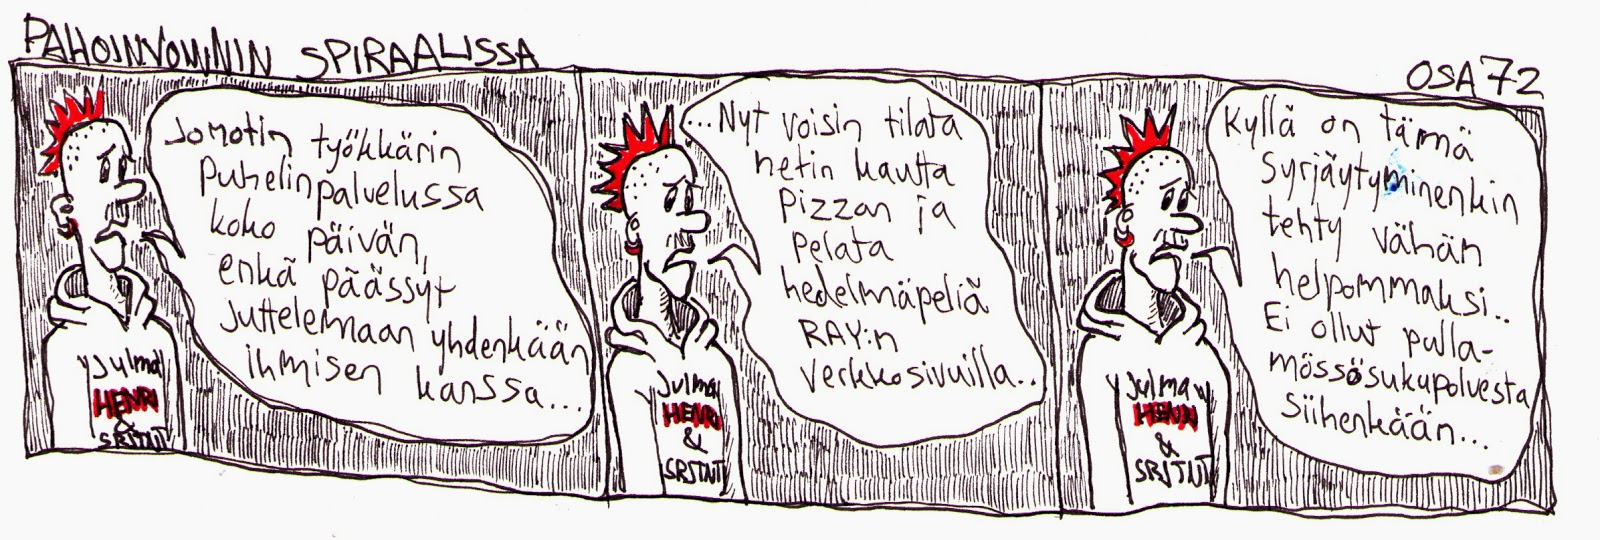 PAHOINVOINNIN SPIRAALISSA
OSA 72
Jonotin työkkärin
puhelinpalvelussa
koko päivän,
enkä päässyt
juttelemaan yhdenkään
ihmisen kanssa...
Julma
HENRI
&
SRJTNT
...Nyt voisin tilata
netin kautta
pizzan ja
pelata
hedelmäpeliä
RAY:n
verkkosivuilla..
Julma
HENRI
&
SRJTNT
Kyllä on tämä
syrjäytyminenkin
tehty vähän
helpommaksi..
Ei ollut pulla-
mössösukupolvesta
siihenkään...
Julma
HENRI
&
SRJTNT